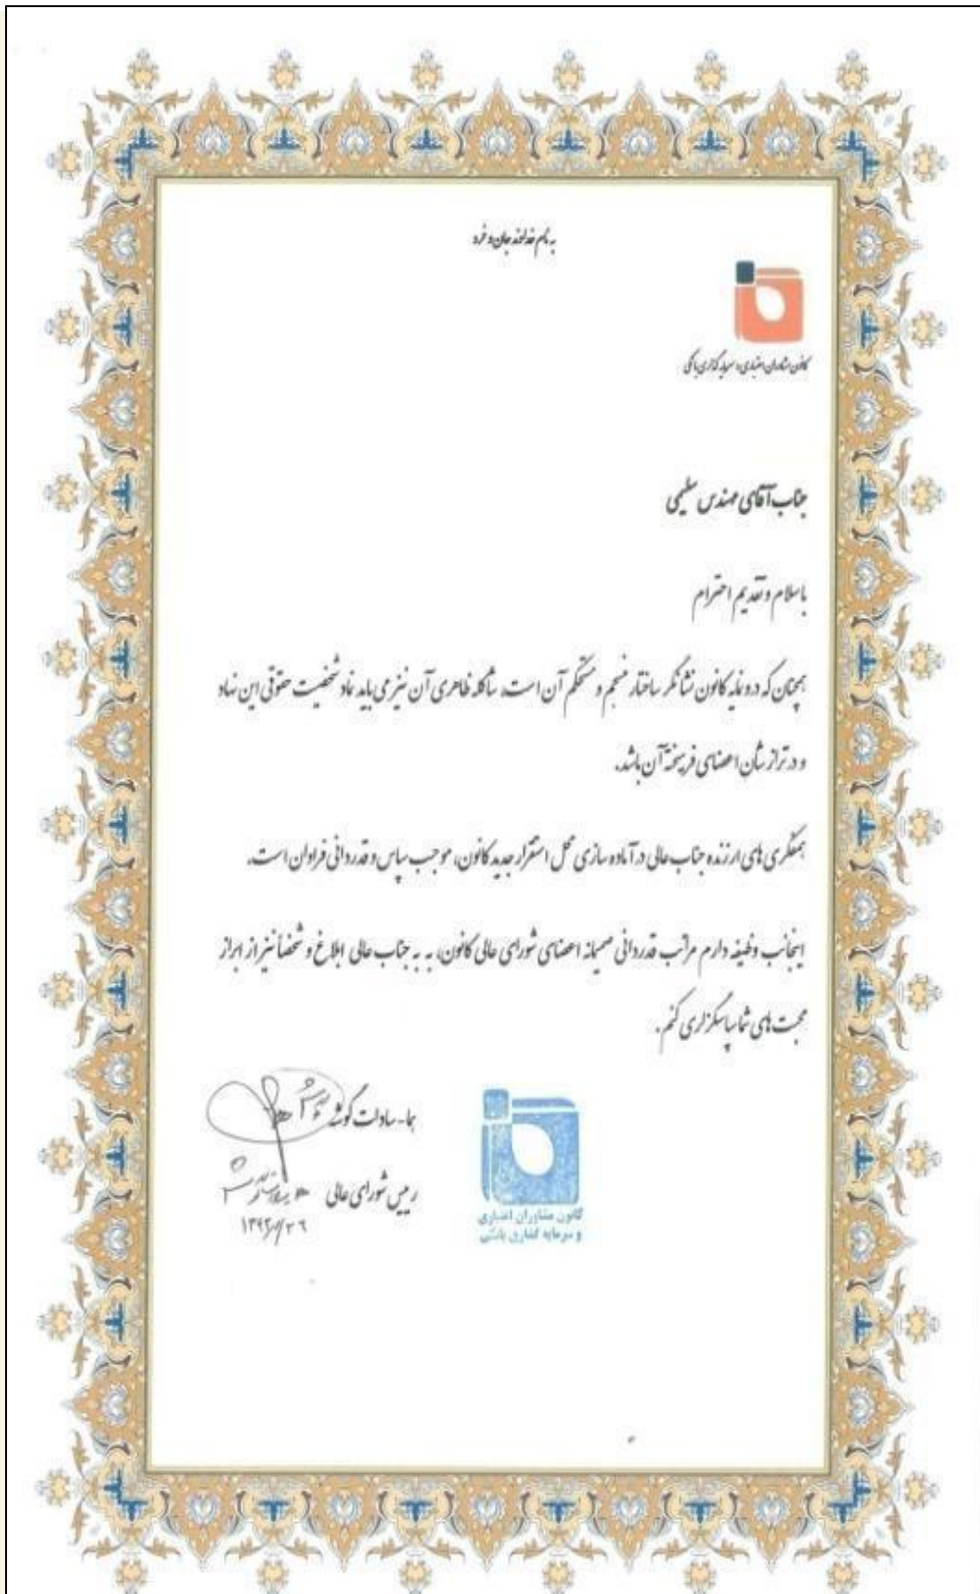 به نام خداوند جان و خرد
کانون مشاوران اعتباری و سرمایه گذاری بانکی
جناب آقای مهندس سلیمی
باسلام و تقدیم احترام
همچنان که درونمایه کانون نشانگر ساختار منسجم و مستحکم آن است، شاکله ظاهری آن نیز می باید نماد شخصیت حقوقی این نهاد
و در تراز شأن اعضای فرهیخته آن باشد.
همفکری های ارزنده جناب عالی در آماده سازی محل استقرار جدید کانون، موجب سپاس و قدردانی فراوان است.
اینجانب وظیفه دارم مراتب قدردانی صمیمانه اعضای شورای عالی کانون، به به جناب عالی ابلاغ و شخصاً نیز از ابراز
محبت های شما سپاسگزاری کنم.
هما-سادات گوشه
رییس شورای عالی
کانون مشاوران اعتباری
و سرمایه گذاری بانکی